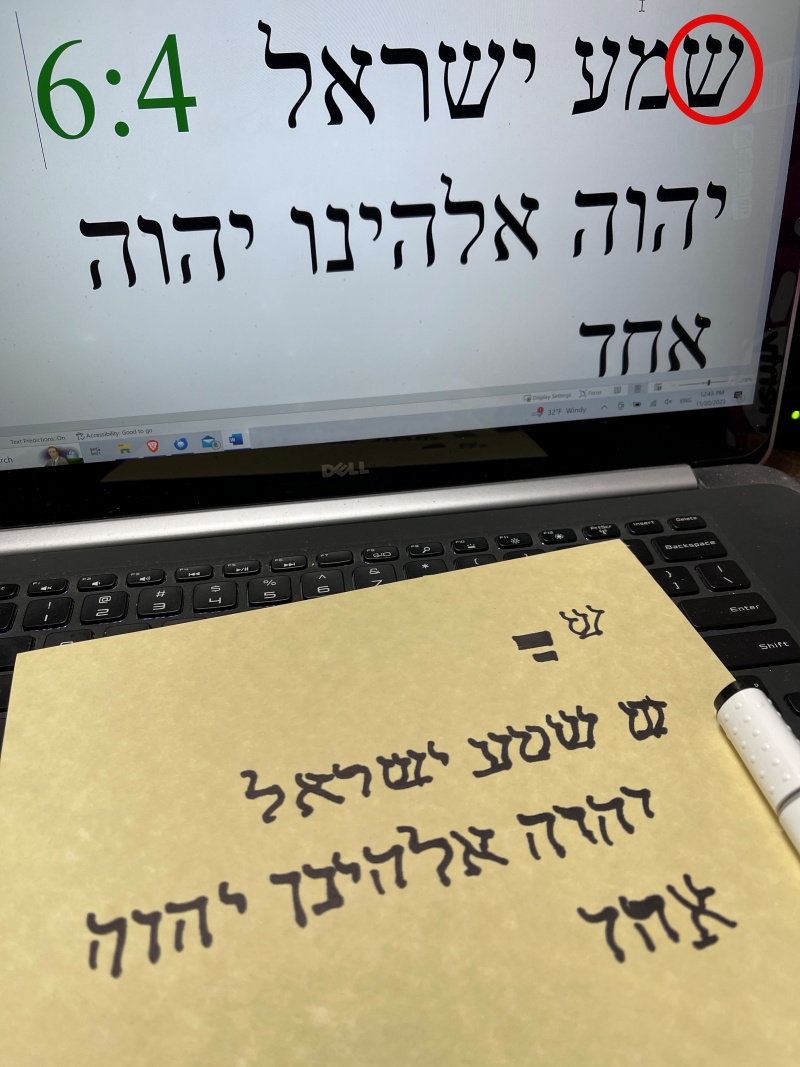 שמע ישראל 6:4
יהוה אלהינו יהוה
אחד
Display Settings Focus
Text Predictions: On Accessibility: Good to go
32°F Windy ENG 12:43 PM
rch
DELL
Insert Delete
Backspace
! 1 @ 2 # 3 $ 4 % 5 ^ 6 & 7 *
Enter
Shift
ש
ש שמע ישראל
יהוה אלהינו יהוה
אחד